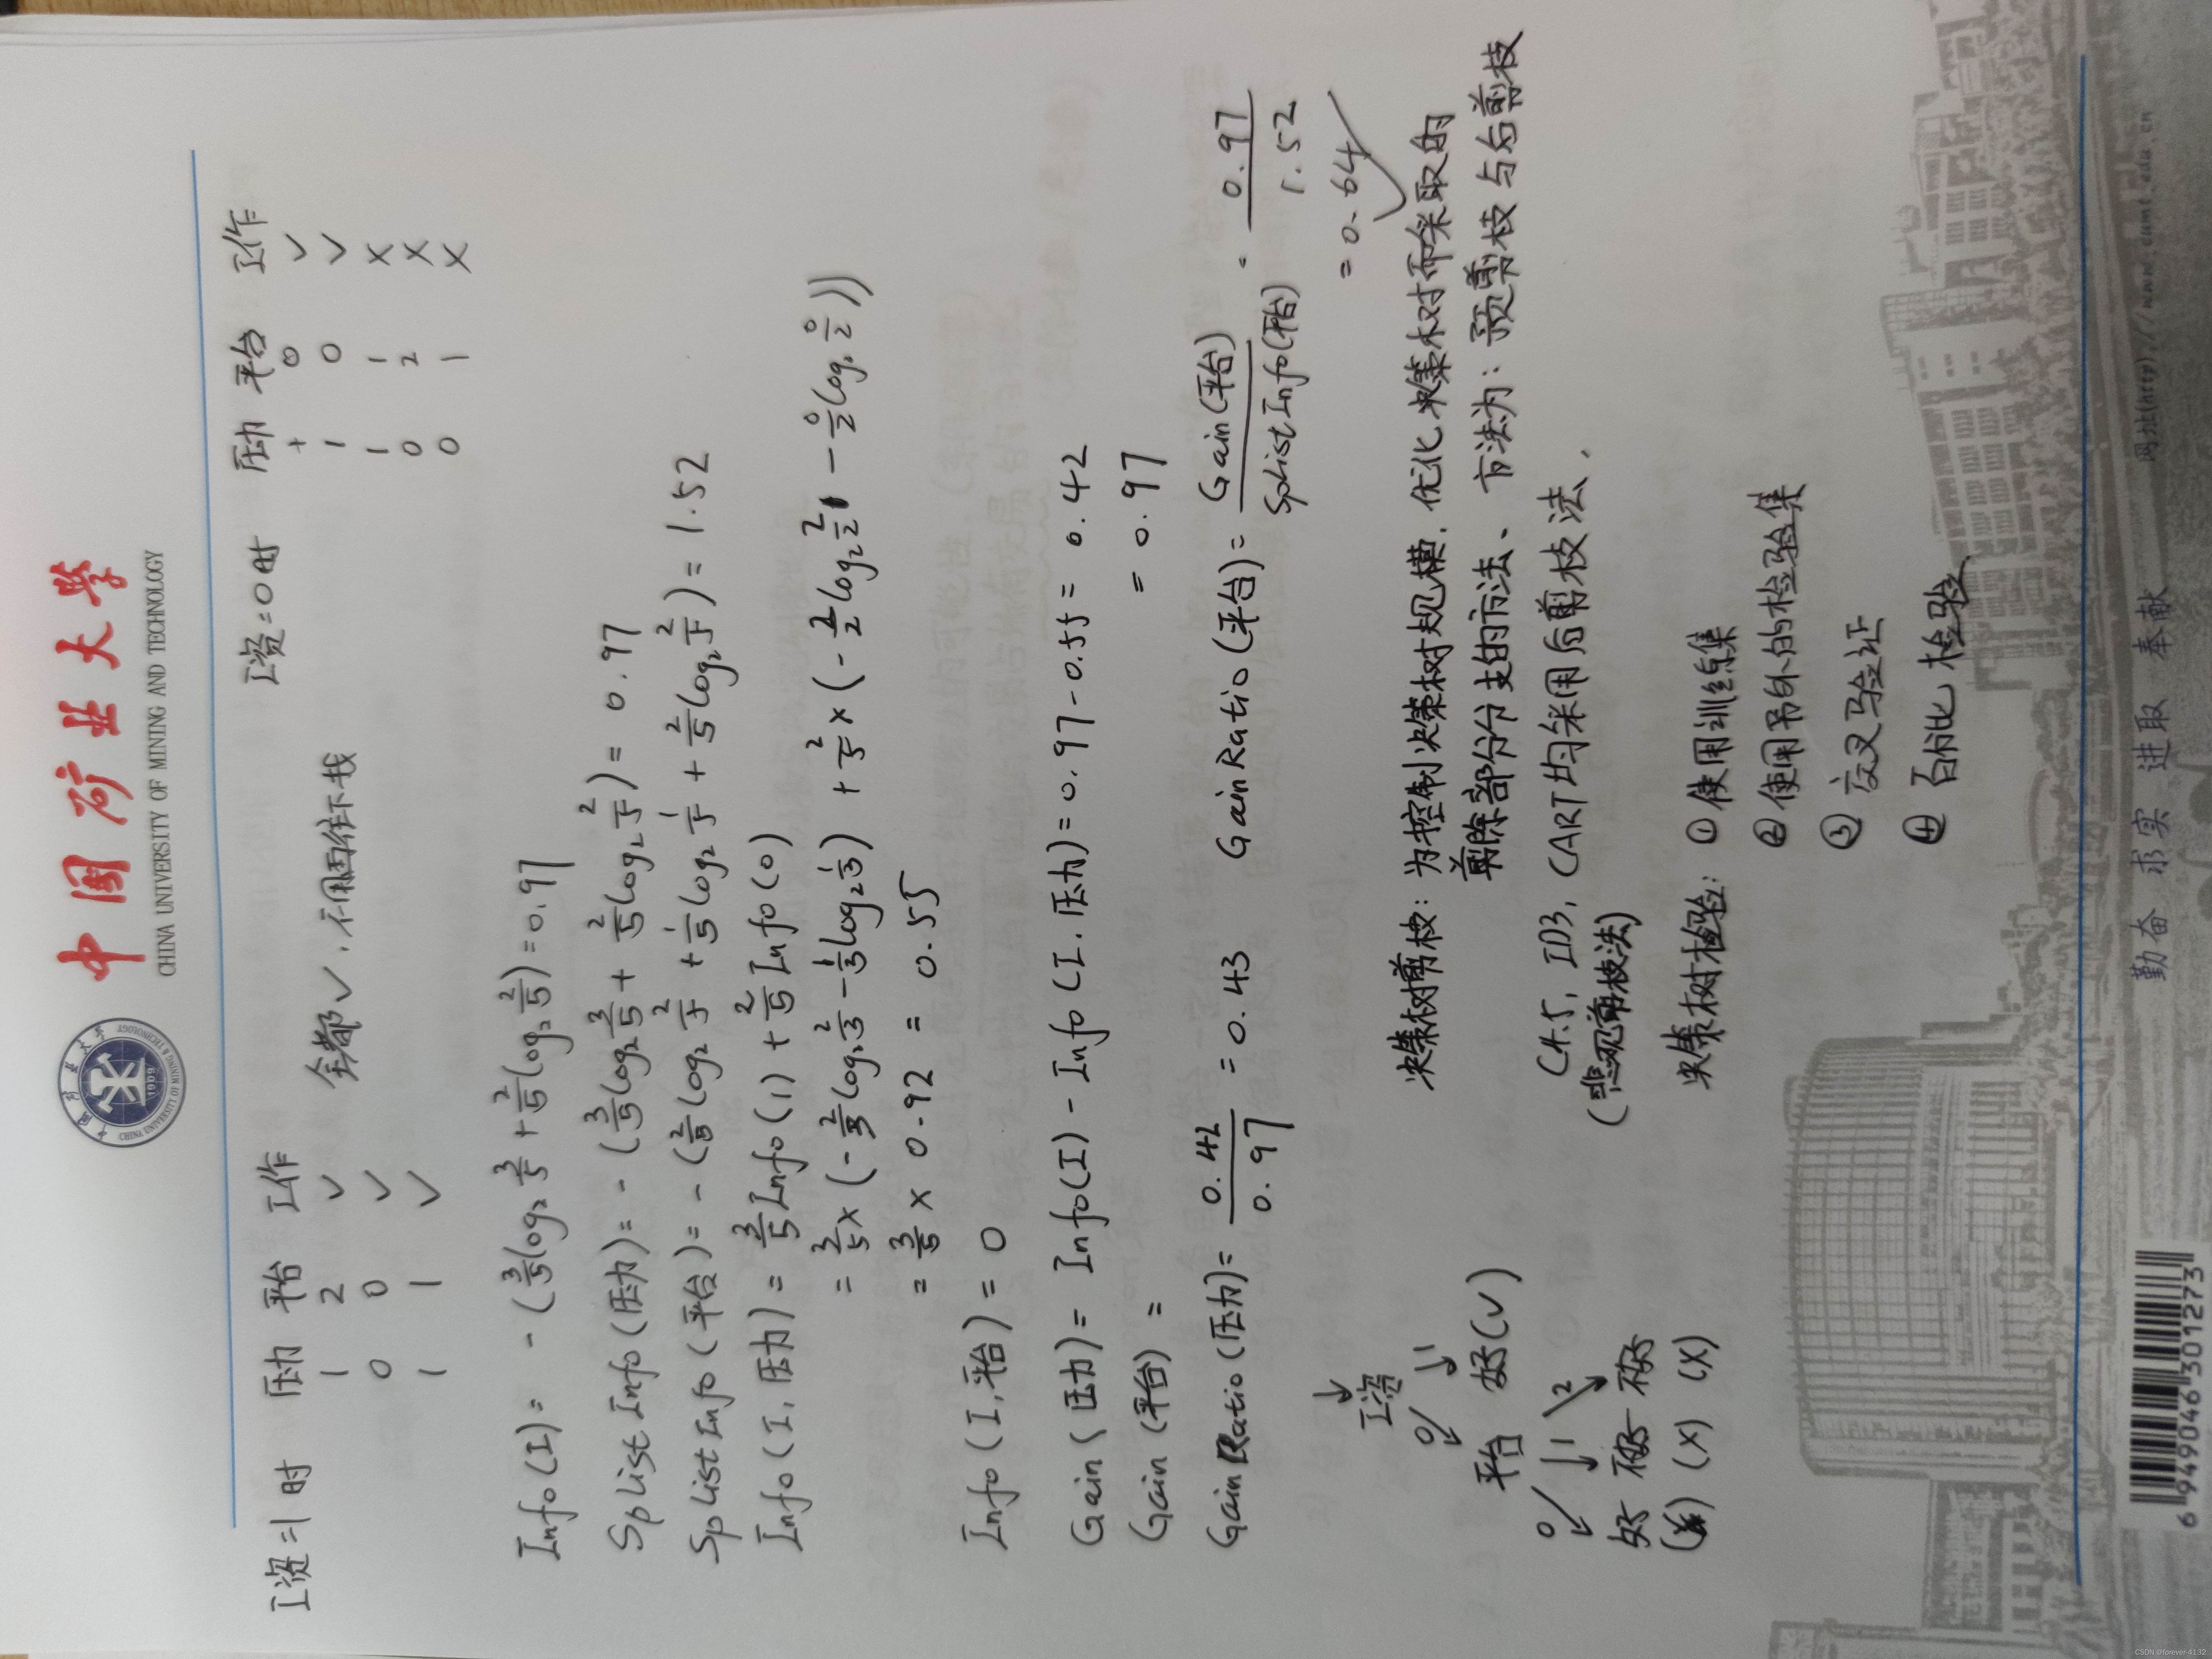 中国矿业大学
CHINA UNIVERSITY OF MINING AND TECHNOLOGY
工资=1时 压力 平台 工作
1 2 ✓
0 0 ✓
1 1 ✓
全都✓,不用再往下找
工资=0时 压力 平台 工作
+ 0 ✓
1 0 ✓
1 1 ×
0 2 ×
0 1 ×
Info(I)= -(3/5log₂3/5+2/5(log₂2/5)=0.97
SplistInfo(压力)= -(3/5log₂3/5+2/5(log₂2/5)=0.97
SplistInfo(平台)= -(2/5(log₂2/5+1/5(log₂1/5+2/5(log₂2/5)=1.52
Info(I,压力)=3/5Info(1)+2/5Info(0)
=3/5×(-2/3(log₂2/3-1/3log₂1/3)+2/5×(-2/2log₂2/2-0/2(log₂0/2))
=3/5×0.92=0.55
Info(I,平台)=0
Gain(压力)=Info(I)-Info(I.压力)=0.97-0.55=0.42
Gain(平台)= =0.97
GainRatio(压力)=0.42/0.97=0.43 GainRatio(平台)=Gain(平台)/SplistInfo(平台)=0.97/1.52
=0.64 ✓
工资
0 1
平台 好(✓)
0 1 2
好 不好 不好
(✓) (×) (×)
决策树剪枝:为控制决策树规模,优化决策树而采取的
剪除部分分支的方法、方法为:预剪枝与后剪枝
C4.5, ID3, CART均采用后剪枝法.
(悲观剪枝法)
决策树检验:①使用训练集
②使用另外的检验集
③交叉验证
④百分比检验
勤奋 求实 进取 奉献
网址(http)://www.cumt.edu.cn
6 949046 301273
CSDN @forever 4132